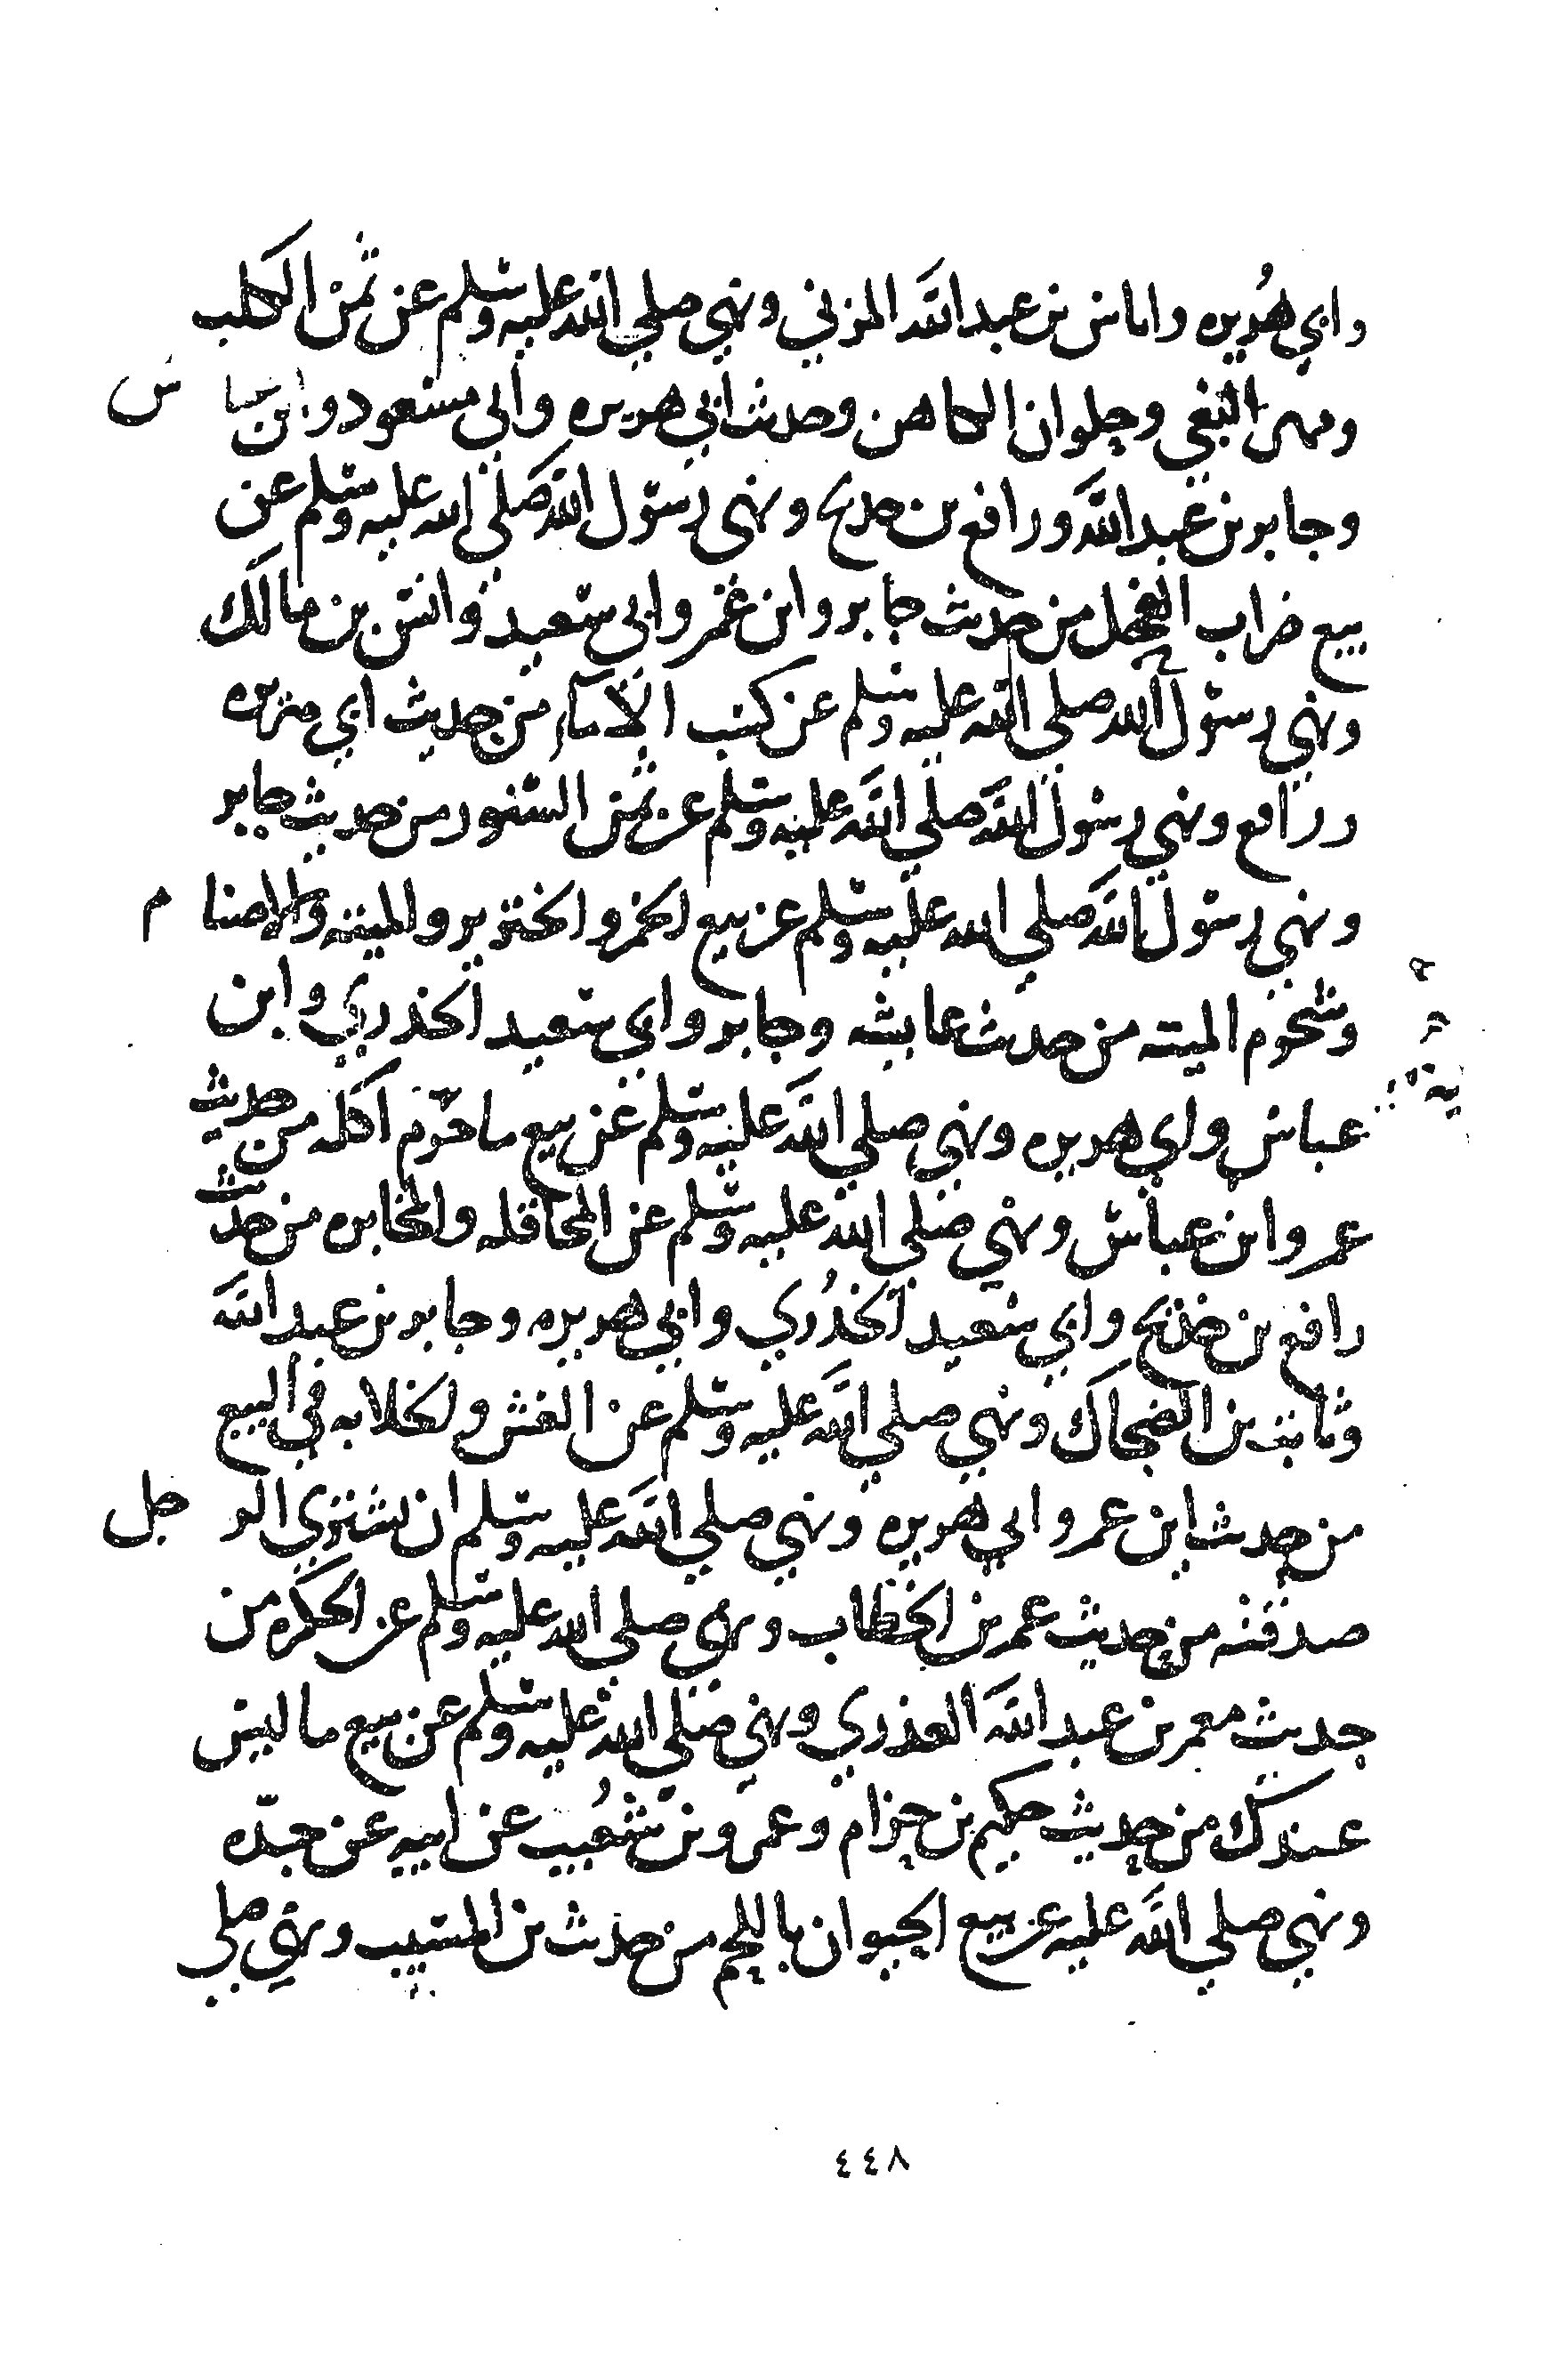 وابي هُريره واياس بن عبد الله المزني ونهي صلي الله عليه وسلم عن ثمن الكلب
ومهر البغي وحلوان الكاهن وحديث ابي هريره وابي مسعود وابن عباس
وجابر بن عبد الله ورافع بن خديج ونهى رسول الله صلي الله عليه وسلم عن
بيع ضراب الفحل من حديث جابر وابن عمر وابي سعيد وانس بن مالك
ونهي رسول الله صلي الله عليه وسلم عن كسب الاماء من حديث ابي هريره
ورافع ونهي رسول الله صلي الله عليه وسلم عن ثمن السنور من حديث جابر
ونهي رسول الله صلي الله عليه وسلم عن بيع الخمر والخنزير والميته والاصنام
وشحوم الميته من حديث عايشه وجابر وابي سعيد الخدري وابن
عباس وابي هريره ونهي صلي الله عليه وسلم عن بيع ما حرّم اكله من حديث
عمر وابن عباس ونهي صلي الله عليه وسلم عن المحاقله والمخابره من حديث
رافع بن خديج وابي سعيد الخدُري وابي هريره وجابر بن عبد الله
وثابت بن الضحاك ونهي صلي الله عليه وسلم عن الغش والخلابه في البيع
من حديث ابن عمر وابي هريره ونهي صلي الله عليه وسلم ان يشتري الرجل
صدقته من حديث عمر بن الخطاب ونهي صلي الله عليه وسلم عن الحكره من
حديث معمر بن عبد الله العذري ونهي صلي الله عليه وسلم عن بيع ما ليس
عندك من حديث حكيم بن حزام وعمرو بن شُعيب عن ابيه عن جدّه
ونهي صلي الله عليه عن بيع الحيوان باللحم من حديث بن المسيب ونهي صلي
٤٤٨